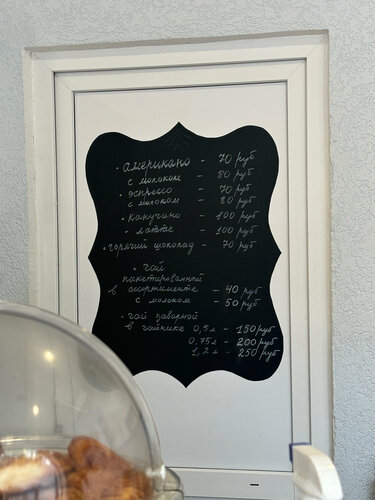 · американо - 70 руб
с молоком - 80 руб
· эспрессо - 70 руб
с молоком - 80 руб
· капучино - 100 руб
· латте - 100 руб
· горячий шоколад - 70 руб
· чай
пакетированный
в ассортименте - 40 руб
с молоком - 50 руб
· чай заварной
в чайнике 0,5л - 150 руб
0,75л - 200 руб
1,2л - 250 руб